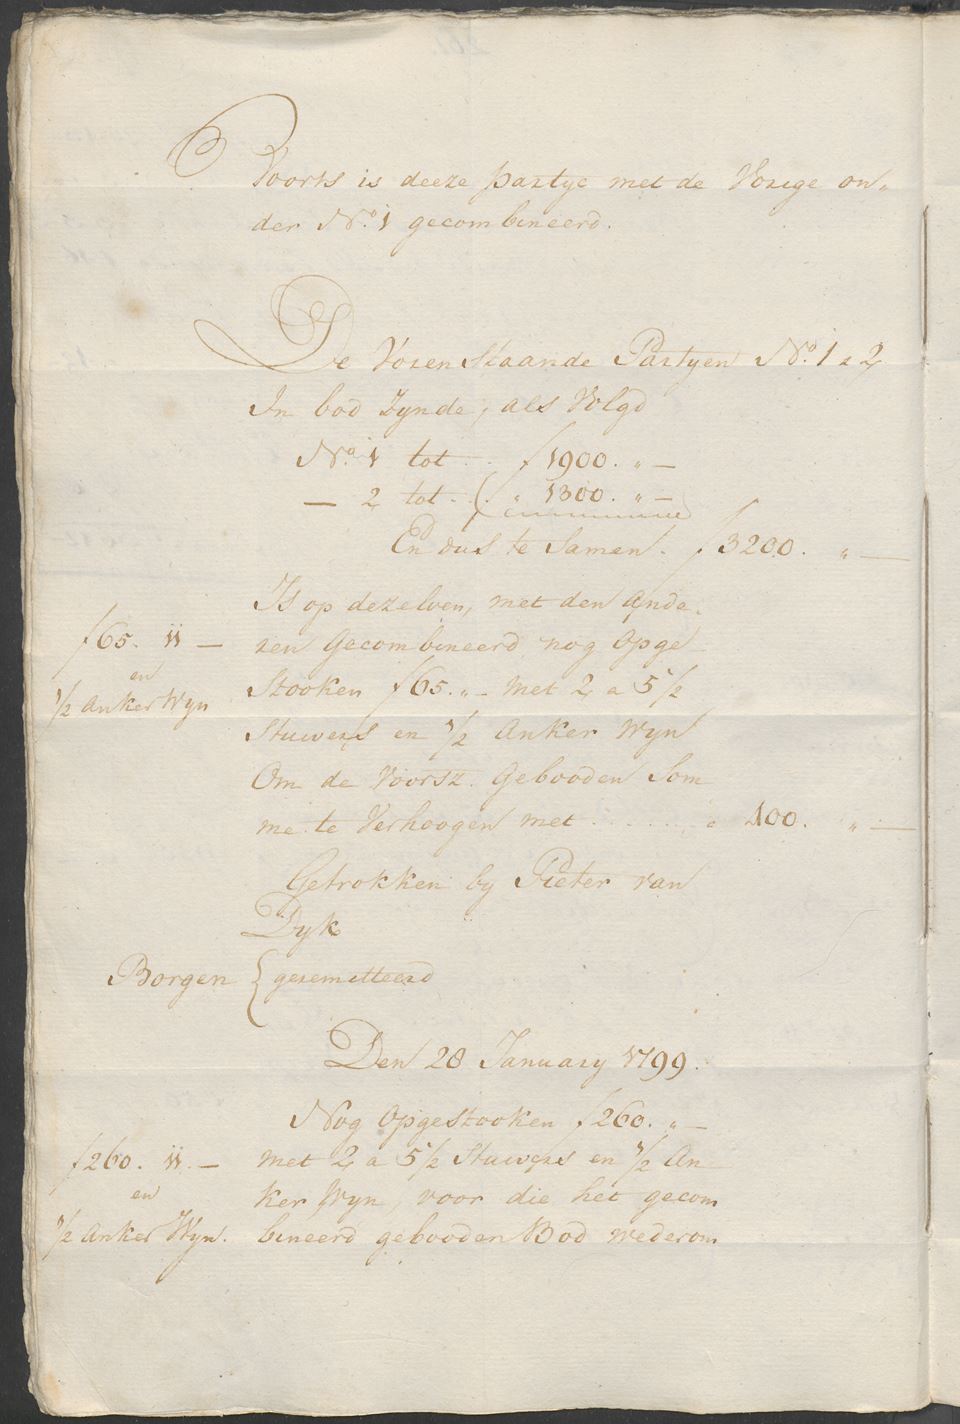 Voorts is deeze partye met de Vorige on„
der No. 1 gecombineerd.
De Voren Staande Partyen No. 1 & 2
In bod Zynde, als Volgd
No. 1 tot . . f 1900. „ —
— 2 tot . . „ 1300. „ —
En dus te Samen. f 3200. „ —
Is op dezelven, met den ande„
ren Gecombineerd nog Opge
f 65. „ —
en
1/2 Anker Wyn
Stooken f 65. „ — met 2 a 5 1/2
Stuivers en 1/2 Anker Wyn
Om de Voorsz. Gebooden Som
me te Verhoogen met . . . . . . „ 100. „ —
Getrokken by Pieter van
Dyk
Borgen { geremitteerd
Den 28 January 1799.
Nog Opgestooken f 260. „ —
f 260. „ —
en
1/2 Anker Wyn.
met 2 a 5 1/2 Stuivers en 1/2 An„
ker Wyn, voor die het gecom
bineerd gebooden Bod wederom